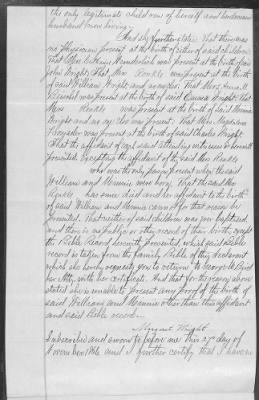 the only legitimate children of herself and her deceased
husband now living.
And she further states That there was
no physician present at the birth of either of said children
That Mrs Wunderlich was present at the birth of
John Wright That Mrs Readle was present at the birth
of said William Wright and
was present at the birth of said Emma Wright That
Mrs Readle was present at the birth of said Minnie
Wright and That Mrs Magdalena
was present at the birth of said Charles Wright
That the affidavit of each said attending witnesses is herewith
presented Excepting the affidavit of the said Mrs Readle
who was the only person present when the said
William and Minnie were born, That the said Mrs
Readle has since died and her affidavit to the birth
of said William and Minnie cannot for that reason be
presented. That neither of said children was ever baptized
and there is no public or other record of their birth, except
the Bible Record herewith presented, which said Bible
record is taken from the family Bible of this declarant
which she hereby requests you to return to George W.
her Atty, with the certificate. And that for the reasons above
stated she is unable to present any proof of the birth of
said William and Minnie other than this affidavit
and said Bible record
Margaret Wright
Subscribed and sworn to before me this 27 day of
November and I further certify that I have no